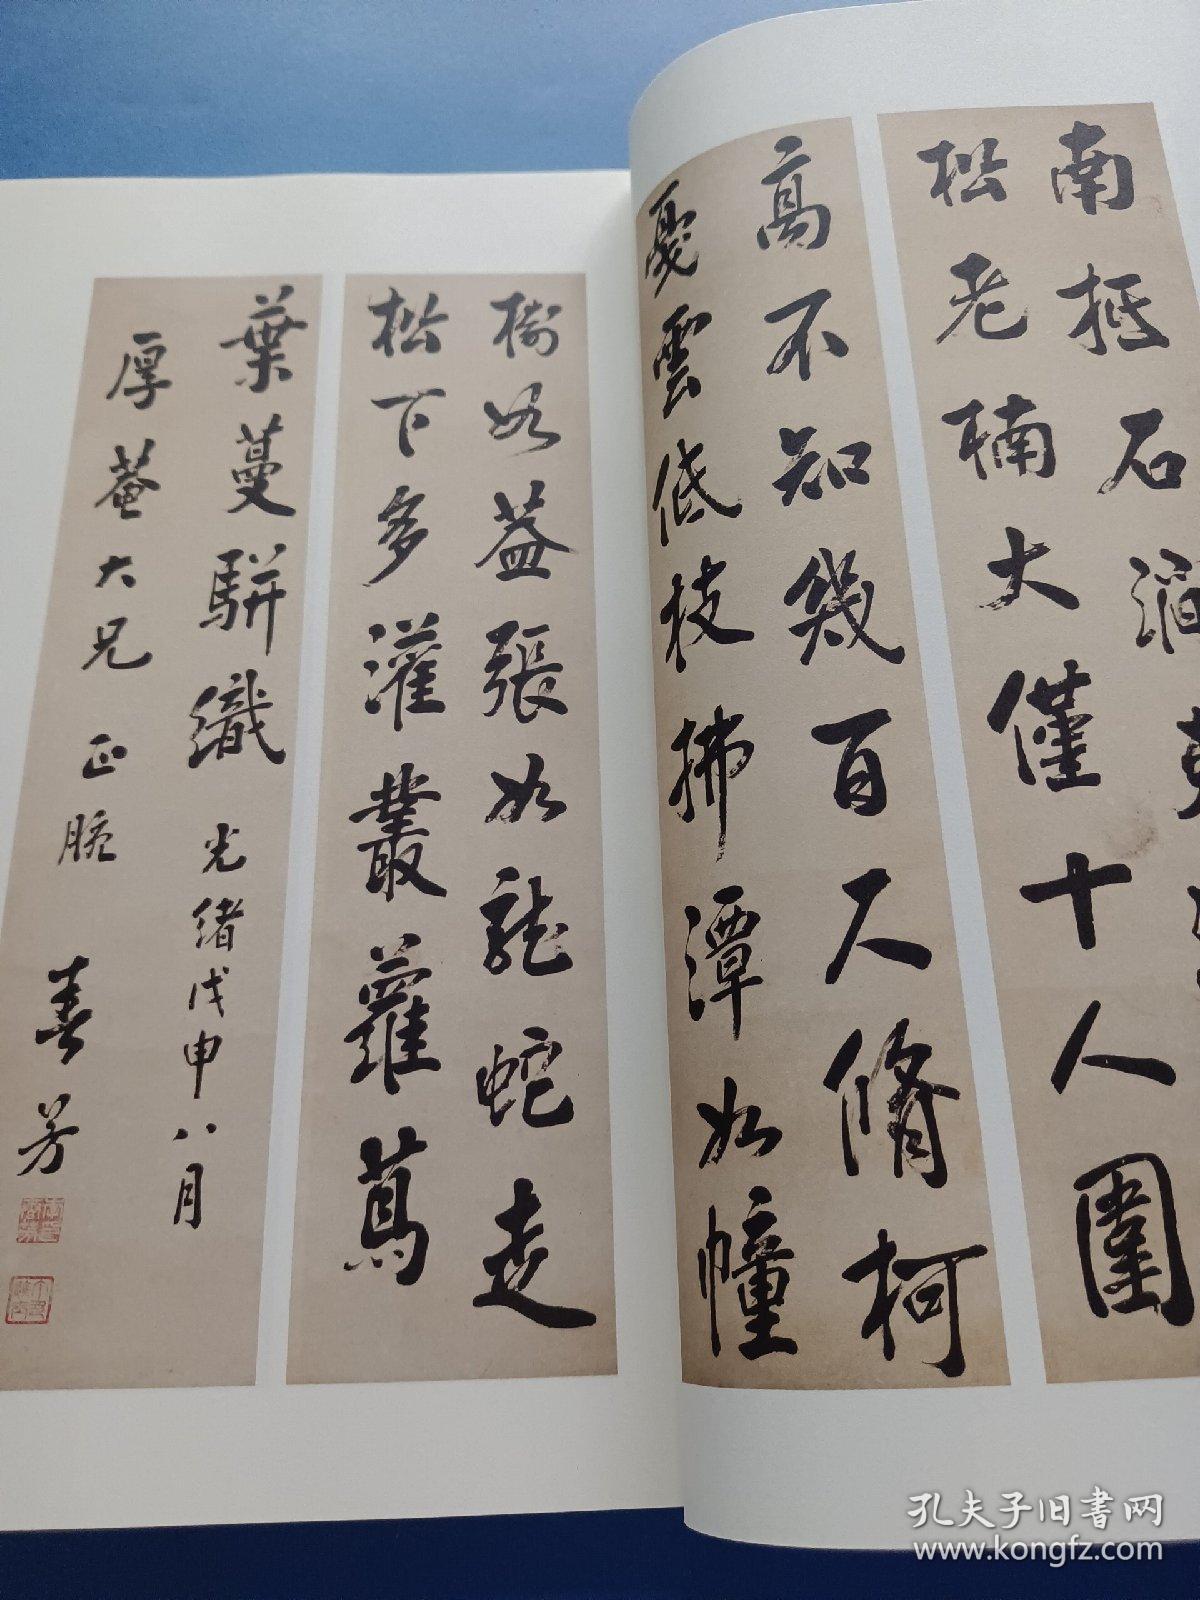 南抵石澗夾
松老楠大僅十人圍
高不知幾百尺脩柯
戛雲低枝拂潭如幢
樹如蓋張如龍蛇走
松下多灌叢蘿蔦
葉蔓駢織 光緒戊申八月
厚菴大兄 正腕 芳
孔夫子旧书网
www.kongfz.com